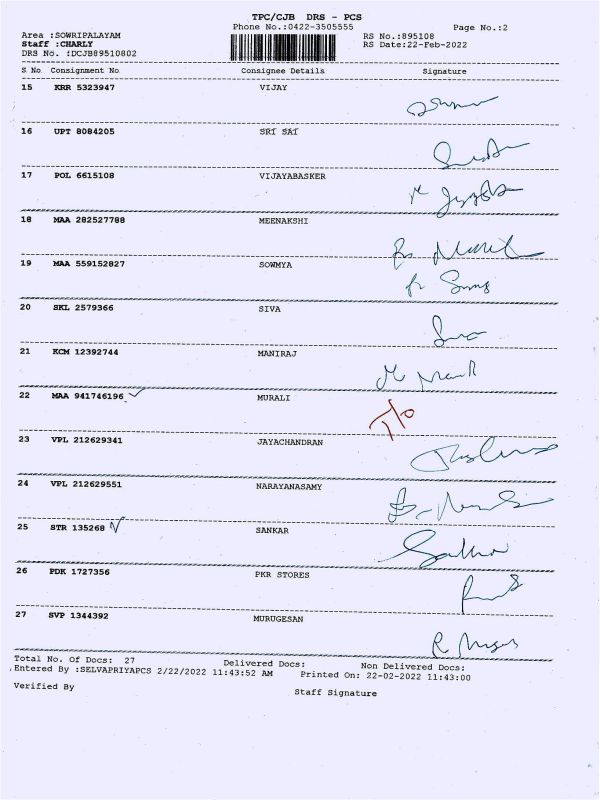 TPC/CJB DRS - PCS
Phone No.:0422-3505555 Page No.:2
Area :SOWRIPALAYAM RS No.:895108
Staff :CHARLY RS Date:22-Feb-2022
DRS No. :DCJB89510802
S No Consignment No Consignee Details Signature
15 KRR 5323947 VIJAY
16 UPT 8084205 SRI SAI
17 POL 6615108 VIJAYABASKER
18 MAA 282527788 MEENAKSHI
19 MAA 559152827 SOWMYA
20 SKL 2579366 SIVA
21 KCM 12392744 MANIRAJ
22 MAA 941746196 MURALI
23 VPL 212629341 JAYACHANDRAN
24 VPL 212629551 NARAYANASAMY
25 STR 135268 SANKAR
26 PDK 1727356 PKR STORES
27 SVP 1344392 MURUGESAN
Total No. Of Docs: 27 Delivered Docs: Non Delivered Docs:
Entered By :SELVAPRIYAPCS 2/22/2022 11:43:52 AM Printed On: 22-02-2022 11:43:00
Verified By Staff Signature